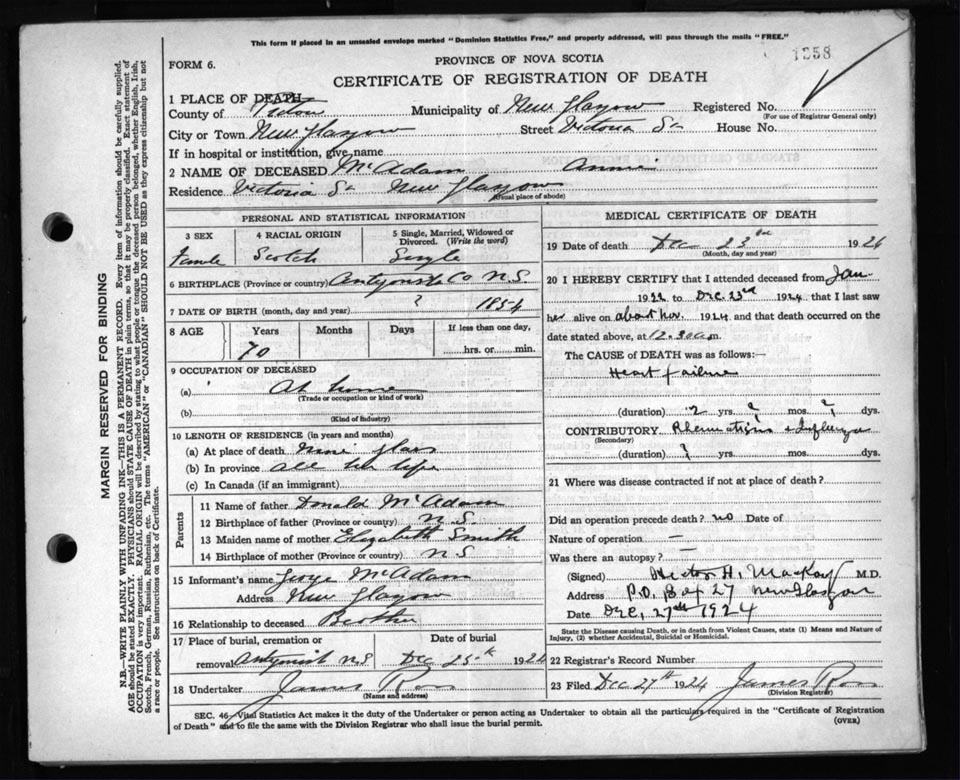 This form if placed in an unsealed envelope marked "Dominion Statistics Free," and properly addressed, will pass through the mails "FREE."
1258
PROVINCE OF NOVA SCOTIA
FORM 6.
CERTIFICATE OF REGISTRATION OF DEATH
1 PLACE OF DEATH
County of Pictou Municipality of New Glasgow Registered No.
(For use of Registrar General only)
City or Town New Glasgow Street Victoria St House No.
If in hospital or institution, give name
2 NAME OF DECEASED McAdam Annie
Residence Victoria St New Glasgow
(Usual place of abode)
PERSONAL AND STATISTICAL INFORMATION
3 SEX 4 RACIAL ORIGIN 5 Single, Married, Widowed or Divorced. (Write the word)
Female Scotch Single
6 BIRTHPLACE (Province or country) Antigonish Co N.S.
7 DATE OF BIRTH (month, day and year) ? 1854
8 AGE Years Months Days If less than one day,
70 hrs. or min.
9 OCCUPATION OF DECEASED
(a) At home
(Trade or occupation or kind of work)
(b)
(Kind of Industry)
10 LENGTH OF RESIDENCE (in years and months)
(a) At place of death nine years
(b) In province all her life
(c) In Canada (if an immigrant)
Parents
11 Name of father Donald McAdam
12 Birthplace of father (Province or country) N.S.
13 Maiden name of mother Elizabeth Smith
14 Birthplace of mother (Province or country) N S
15 Informant's name McAdam
Address New Glasgow
16 Relationship to deceased Brother
17 Place of burial, cremation or Date of burial
removal Antigonish N.S Dec 25th 1924
18 Undertaker James Ross
(Name and address)
MEDICAL CERTIFICATE OF DEATH
19 Date of death Dec 23rd 1924
(Month, day and year)
20 I HEREBY CERTIFY that I attended deceased from Jan
1922 to Dec. 23rd 1924 that I last saw
her alive on about Nov. 1924 and that death occurred on the
date stated above, at 12.30 a.m.
The CAUSE of DEATH was as follows:—
Heart failure
(duration) 2 yrs. ? mos. ? dys.
CONTRIBUTORY Rheumatism & Influenza
(Secondary)
(duration) ? yrs. mos. dys.
21 Where was disease contracted if not at place of death?
Did an operation precede death? no Date of
Nature of operation —
Was there an autopsy? —
(Signed) Hector H. MacKay M.D.
Address P.O. Box 27 New Glasgow
Date Dec, 27th 1924
State the Disease causing Death, or in death from Violent Causes, state (1) Means and Nature of
Injury, (2) whether Accidental, Suicidal or Homicidal.
22 Registrar's Record Number
23 Filed Dec 27th 1924 James Ross
(Division Registrar)
SEC. 46—Vital Statistics Act makes it the duty of the Undertaker or person acting as Undertaker to obtain all the particulars required in the "Certificate of Registration
of Death" and to file the same with the Division Registrar who shall issue the burial permit.
(OVER)
MARGIN RESERVED FOR BINDING
N.B.—WRITE PLAINLY WITH UNFADING INK—THIS IS A PERMANENT RECORD. Every item of information should be carefully supplied.
AGE should be stated EXACTLY. PHYSICIANS should STATE CAUSE OF DEATH in plain terms, so that it may be properly classified. Exact statement of
OCCUPATION is very important. RACIAL ORIGIN will be described by stating to what people or tongue the deceased person belonged, whether English, Irish,
Scotch, French, German, Russian, Ruthenian, etc. The terms "AMERICAN" or "CANADIAN" SHOULD NOT BE USED as they express citizenship but not
a race or people. See instructions on back of Certificate.